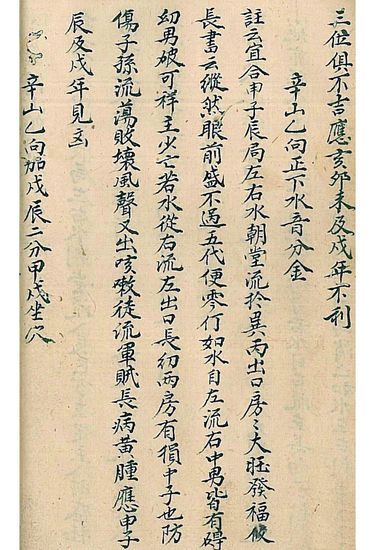 三位俱不吉應亥卯未及戊年不利
辛山乙向正下水音分金
註云宜合申子辰局左右水朝堂流於巽丙出口房〻大旺發福攸
長書云縱然眼前盛不過五代便零仃如水自左流右中男皆有碍
幼男破可祥主少亡若水從右流左出口長幼兩房有損中子也防
傷子孫流蕩敗壞風聲又出咳嗽徒流軍賊長病黃腫應申子
辰及戊年見凶
辛山乙向加戊辰二分甲戌坐穴